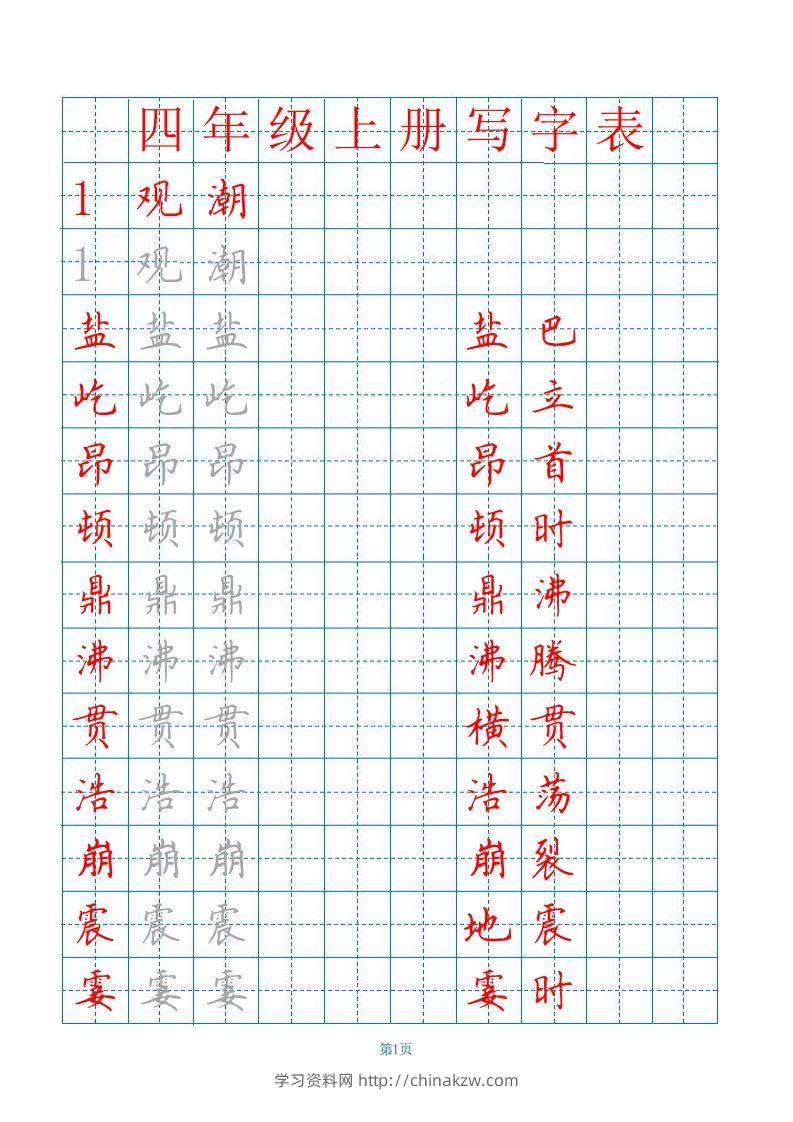 四年级上册写字表
1 观潮
1 观潮
盐 盐 盐 盐巴
屹 屹 屹 屹立
昂 昂 昂 昂首
顿 顿 顿 顿时
鼎 鼎 鼎 鼎沸
沸 沸 沸 沸腾
贯 贯 贯 横贯
浩 浩 浩 浩荡
崩 崩 崩 崩裂
震 震 震 地震
霎 霎 霎 霎时
第1页
学习资料网 http://chinakzw.com